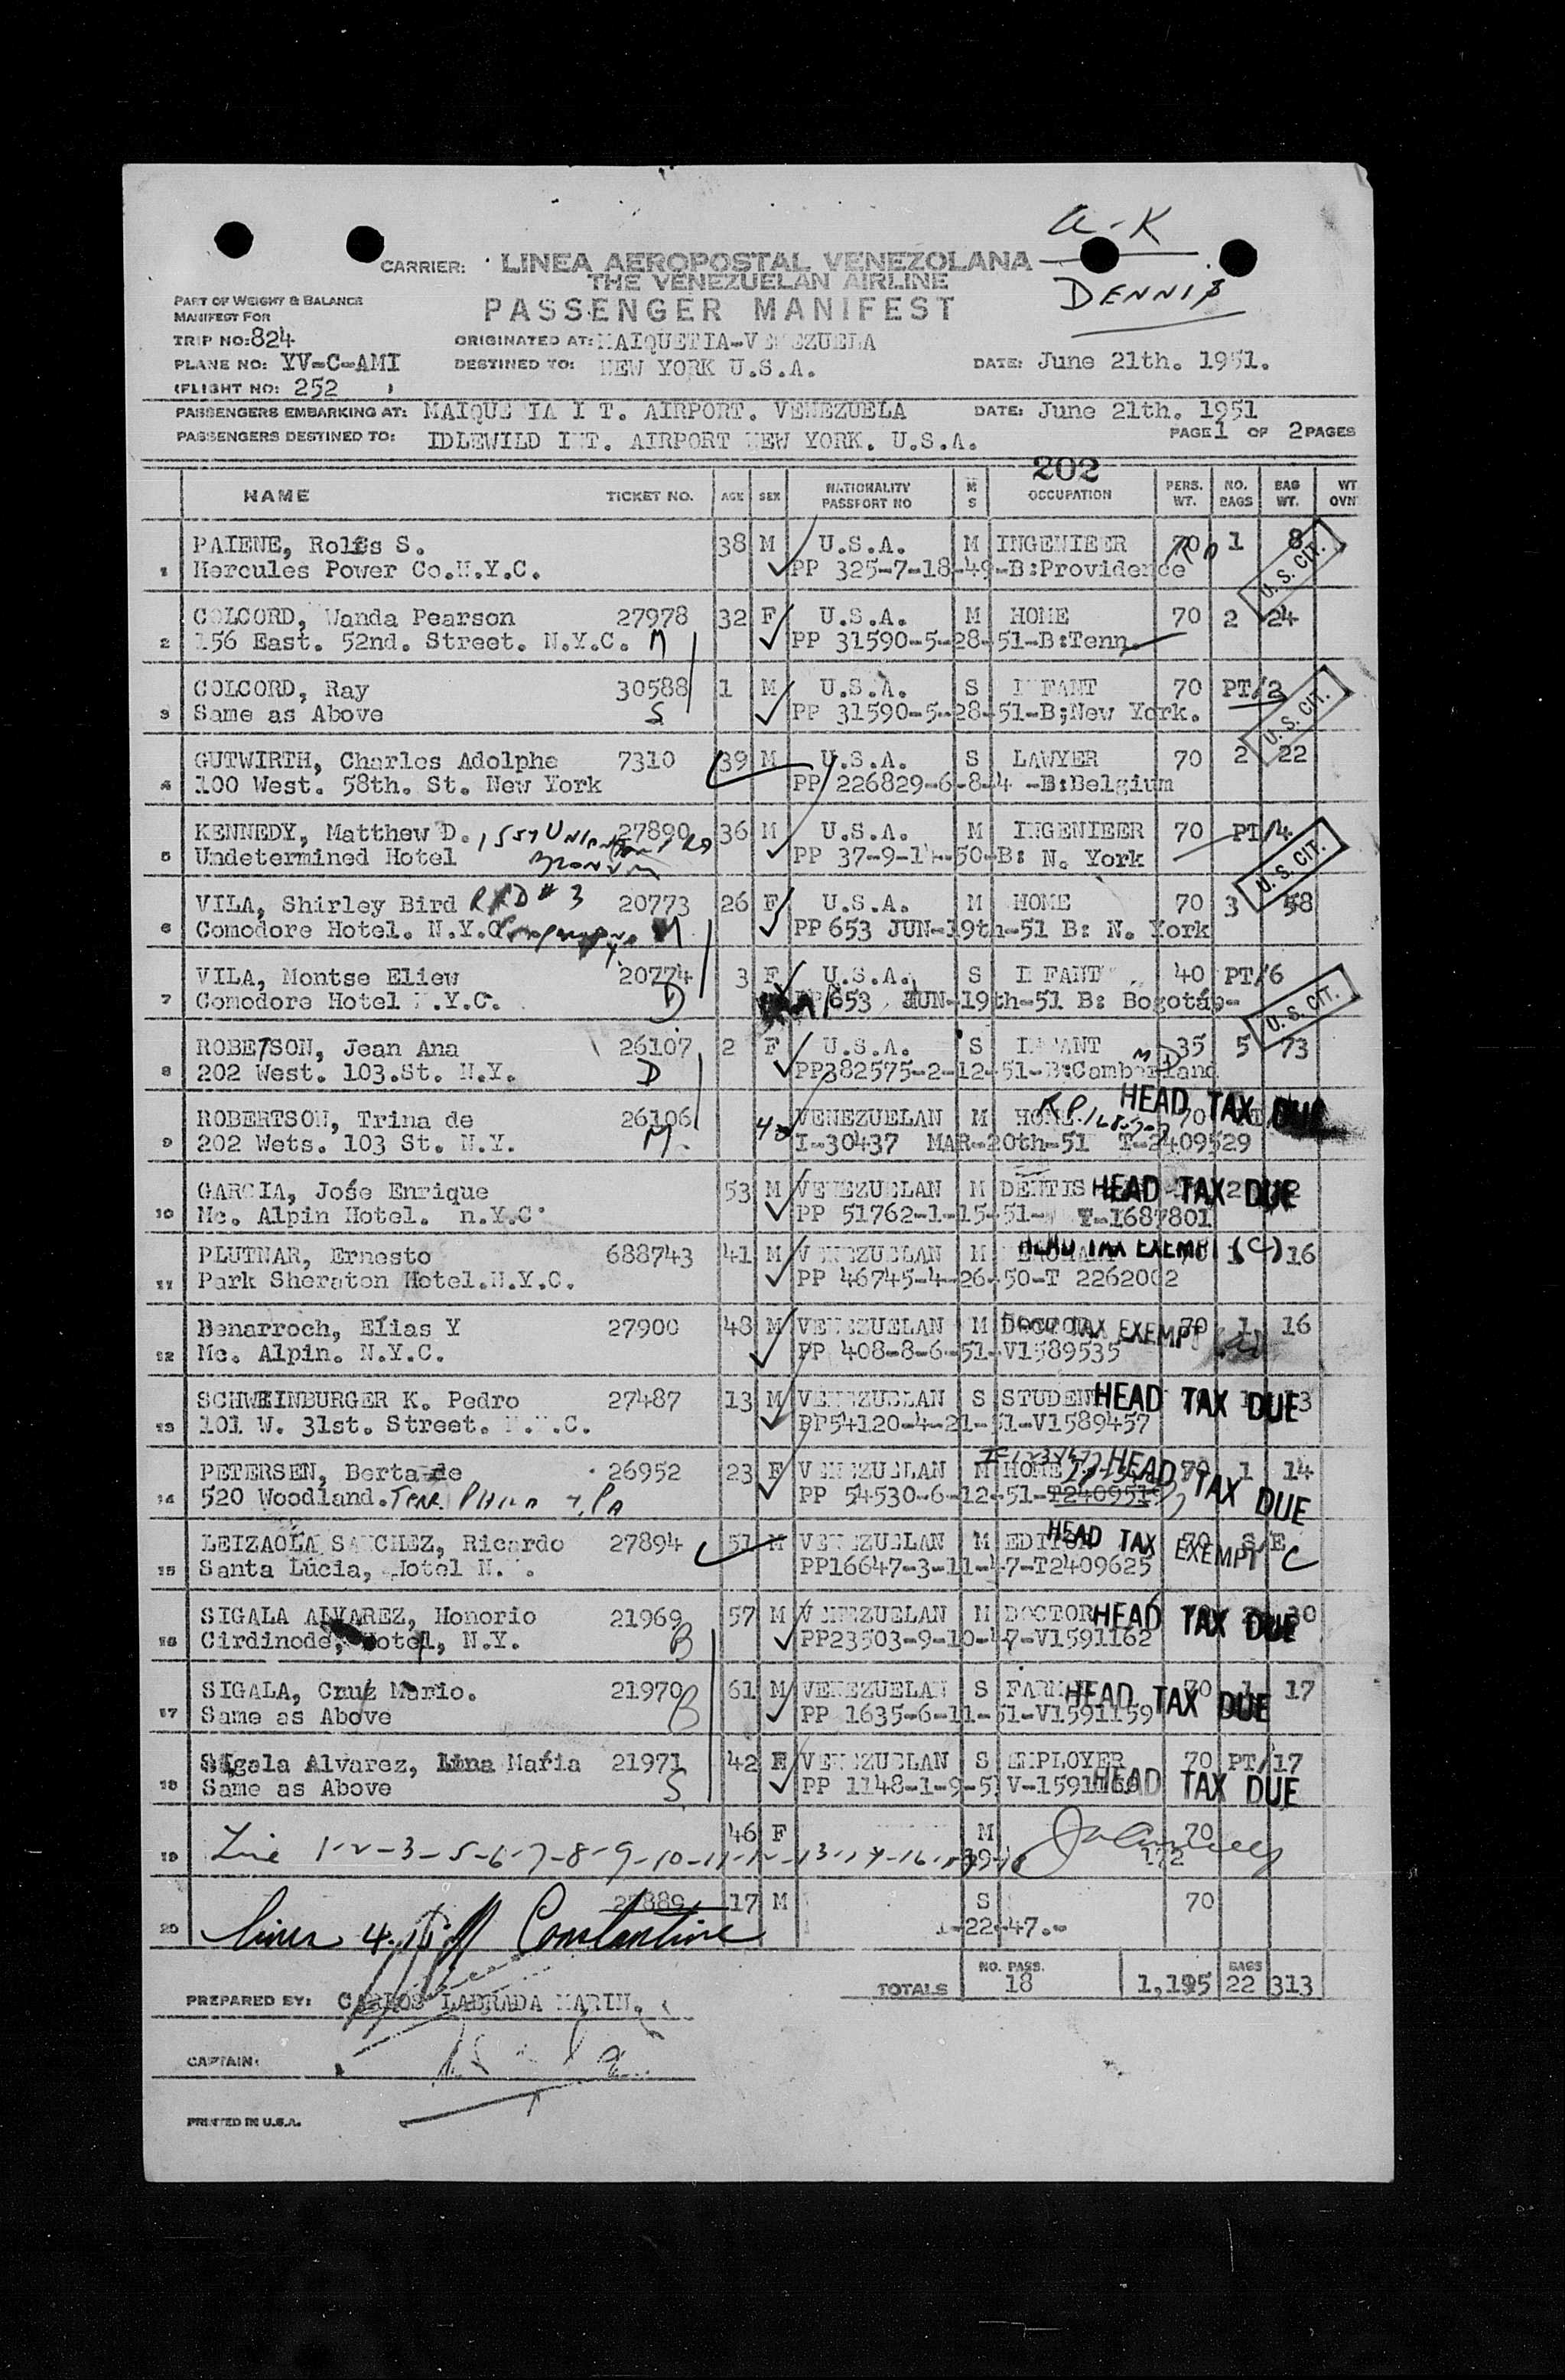 a-K
CARRIER: LINEA AEROPOSTAL VENEZOLANA
THE VENEZUELAN AIRLINE
DENNIS
PART OF WEIGHT & BALANCE
MANIFEST FOR
PASSENGER MANIFEST
TRIP NO: 824 ORIGINATED AT: MAIQUETIA-VENEZUELA
PLANE NO: YV-C-AMI DESTINED TO: NEW YORK U.S.A. DATE: June 21th. 1951.
(FLIGHT NO: 252 )
PASSENGERS EMBARKING AT: MAIQUE IA I T. AIRPORT. VENEZUELA DATE: June 21th. 1951
PASSENGERS DESTINED TO: IDLEWILD I T. AIRPORT NEW YORK. U.S.A. PAGE 1 OF 2 PAGES
202
NAME TICKET NO. AGE SEX NATIONALITY PASSPORT NO M S OCCUPATION PERS. WT. NO. BAGS BAG WT. WT OVN
PAIENE, Rolfs S. 38 M U.S.A. M INGENIEER 70 1 8
1 Hercules Power Co.N.Y.C. PP 325-7-18-49-B:Providence
U.S. CIT.
COLCORD, Wanda Pearson 27978 32 F U.S.A. M HOME 70 2 24
2 156 East. 52nd. Street. N.Y.C. M PP 31590-5-28-51-B:Tenn.
COLCORD, Ray 30588 1 M U.S.A. S I FANT 70 PT/2
3 Same as Above S PP 31590-5-28-51-B;New York.
U.S. CIT.
GUTWIRTH, Charles Adolphe 7310 39 M U.S.A. S LAWYER 70 2 22
4 100 West. 58th. St. New York PP 226829-6-8-4 -B:Belgium
KENNEDY, Matthew D. 27890 36 M U.S.A. M INGENIEER 70 PT/4
5 Undetermined Hotel PP 37-9-1 -50-B: N. York
U.S. CIT.
VILA, Shirley Bird RFD # 3 20773 26 F U.S.A. M HOME 70 3 58
6 Comodore Hotel. N.Y.C. M PP 653 JUN-19th-51 B: N. York
VILA, Montse Eliew 20774 3 F U.S.A. S I FANT 40 PT/6
7 Comodore Hotel .Y.C. D 653 JUN-19th-51 B: Bogotá
U.S. CIT.
ROBETSON, Jean Ana 26107 2 F U.S.A. S I ANT 35 5 73
8 202 West. 103.St. N.Y. D PP382575-2-12-51-B:Comberland
HEAD TAX DUE
ROBERTSON, Trina de 26106 VENEZUELAN M HOME 70
9 202 Wets. 103 St. N.Y. M. I-30437 MAR-20th-51 T-2409529
GARCIA, José Enrique 53 M VENEZUELAN M DENTIS HEAD TAX DUE 2
10 Mc. Alpin Hotel. n.Y.C. PP 51762-1-15-51- T-1687801
PLUTNAR, Ernesto 688743 41 M VENEZUELAN M HEAD TAX EXEMPT (C) 16
11 Park Sheraton Hotel.N.Y.C. PP 46745-4-26-50-T 2262002
Benarroch, Elias Y 27900 48 M VENEZUELAN M DOCTOR TAX EXEMPT 70 1 16
12 Mc. Alpin. N.Y.C. PP 408-8-6-51-V1589535
SCHWEINBURGER K. Pedro 27487 13 M VENEZUELAN S STUDEN HEAD TAX DUE 3
13 101 W. 31st. Street. N. .C. BP54120-4-21-51-V1589457
PETERSEN, Berta de 26952 23 F VENEZUELAN M HOME HEAD TAX DUE 70 1 14
14 520 Woodland. PP 54530-6-12-51-T2409519
LEIZAOLA SANCHEZ, Ricardo 27894 51 M VENEZUELAN M EDITOR HEAD TAX EXEMPT C 70 S/E
15 Santa Lucia, Hotel N. . PP16647-3-11-47-T2409625
SIGALA ALVAREZ, Honorio 21969 57 M VENEZUELAN M DOCTOR HEAD TAX DUE 30
16 Cirdinode, Hotel, N.Y. B PP23503-9-10-47-V1591162
SIGALA, Cruz Mario. 21970 61 M VENEZUELAN S FARM HEAD TAX DUE 70 1 17
17 Same as Above B PP 1635-6-11-51-V1591159
Sigala Alvarez, Lina María 21971 42 F VENEZUELAN S EMPLOYER 70 PT/17
18 Same as Above S PP 1148-1-9-51 V-1591160 HEAD TAX DUE
46 F M 70
19 Line 1-2-3-5-6-7-8-9-10-11-12-13-14-16-17-18
889 17 M S 70
20 Lines 4. Constantine -22-47.-
TOTALS NO. PASS. 18 1,195 BAGS 22 313
PREPARED BY: CARLOS LABRADA MARIN.
CAPTAIN:
PRINTED IN U.S.A.